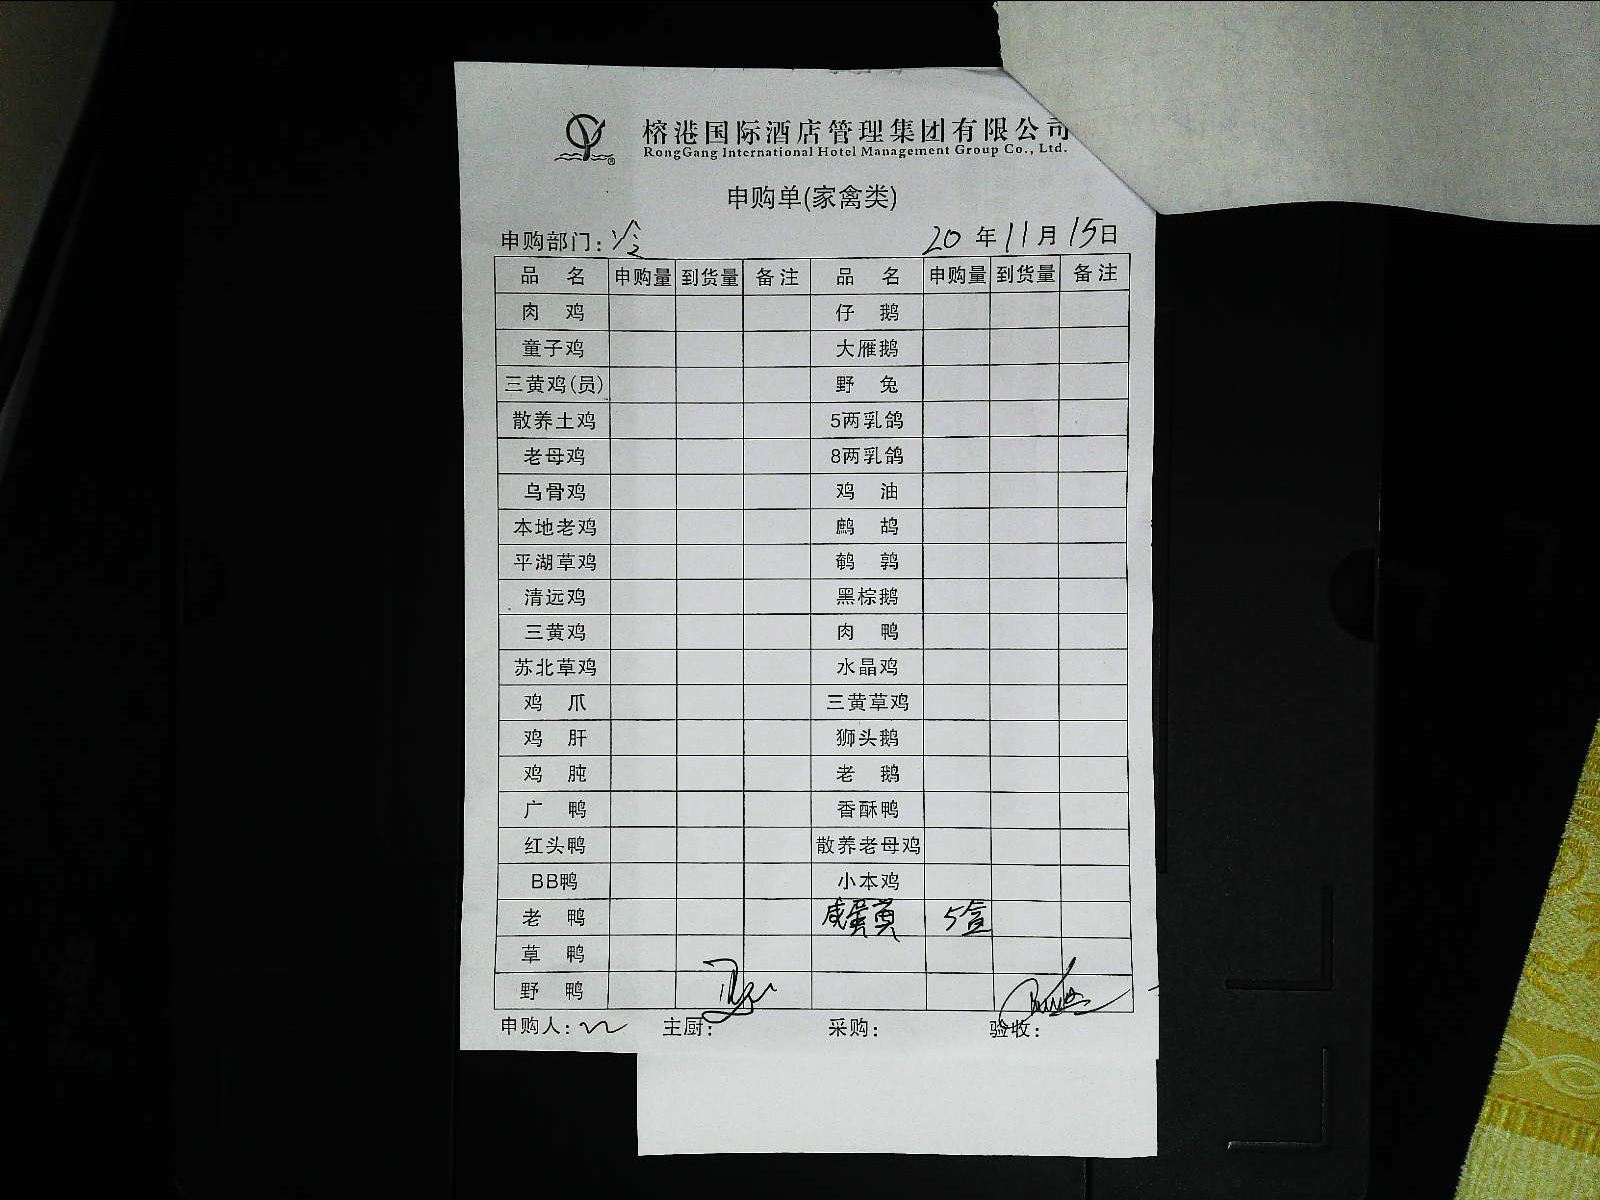 榕港国际酒店管理集团有限公司
RongGang International Hotel Management Group Co., Ltd.
申购单(家禽类)
申购部门：冷 20 年 11 月 15 日
品 名 申购量 到货量 备注 品 名 申购量 到货量 备注
肉 鸡 仔 鹅
童子鸡 大雁鹅
三黄鸡(员) 野 兔
散养土鸡 5两乳鸽
老母鸡 8两乳鸽
乌骨鸡 鸡 油
本地老鸡 鹧 鸪
平湖草鸡 鹌 鹑
清远鸡 黑棕鹅
三黄鸡 肉 鸭
苏北草鸡 水晶鸡
鸡 爪 三黄草鸡
鸡 肝 狮头鹅
鸡 肫 老 鹅
广 鸭 香酥鸭
红头鸭 散养老母鸡
BB鸭 小本鸡
老 鸭 咸蛋黄 5盒
草 鸭
野 鸭
申购人： 主厨： 采购： 验收：